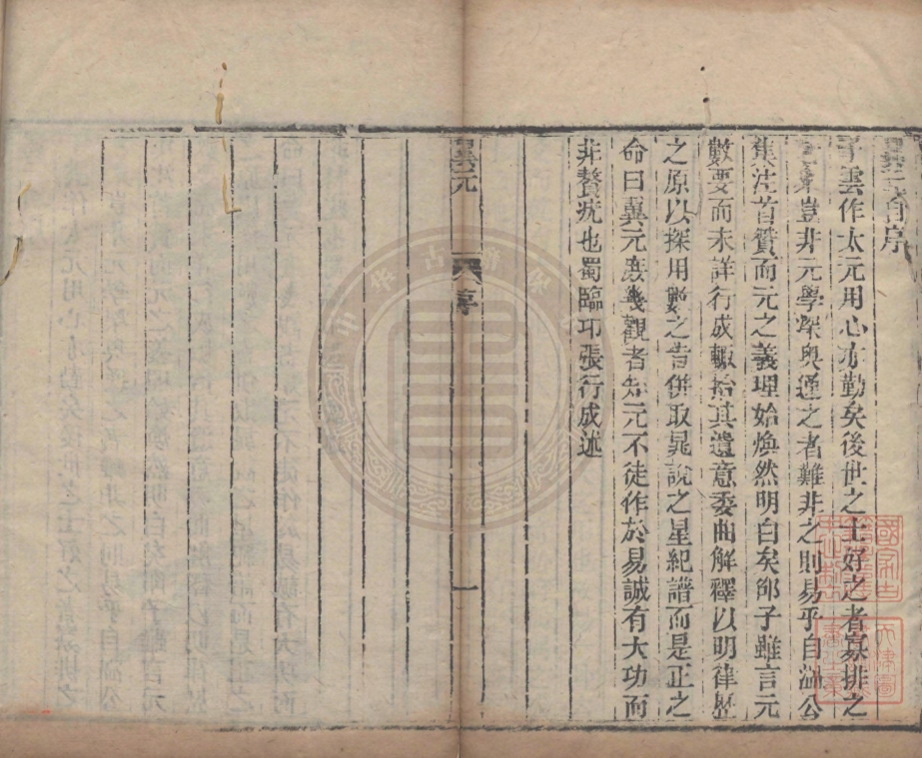 翼元序
子雲作太元用心亦勤矣後世之士好之者寡排之
者衆豈非元學深奧通之者難非之則易乎自溫公
集注首贊而元之義理始煥然明白矣邵子雖言元
數要而未詳行成輒拾其遺意委曲解釋以明律歷
之原以探用數之旨併取晁說之星紀譜而是正之
命曰翼元庶幾觀者知元不徒作於易誠有大功而
非贅疣也蜀臨卭張行成述
翼元
序
一